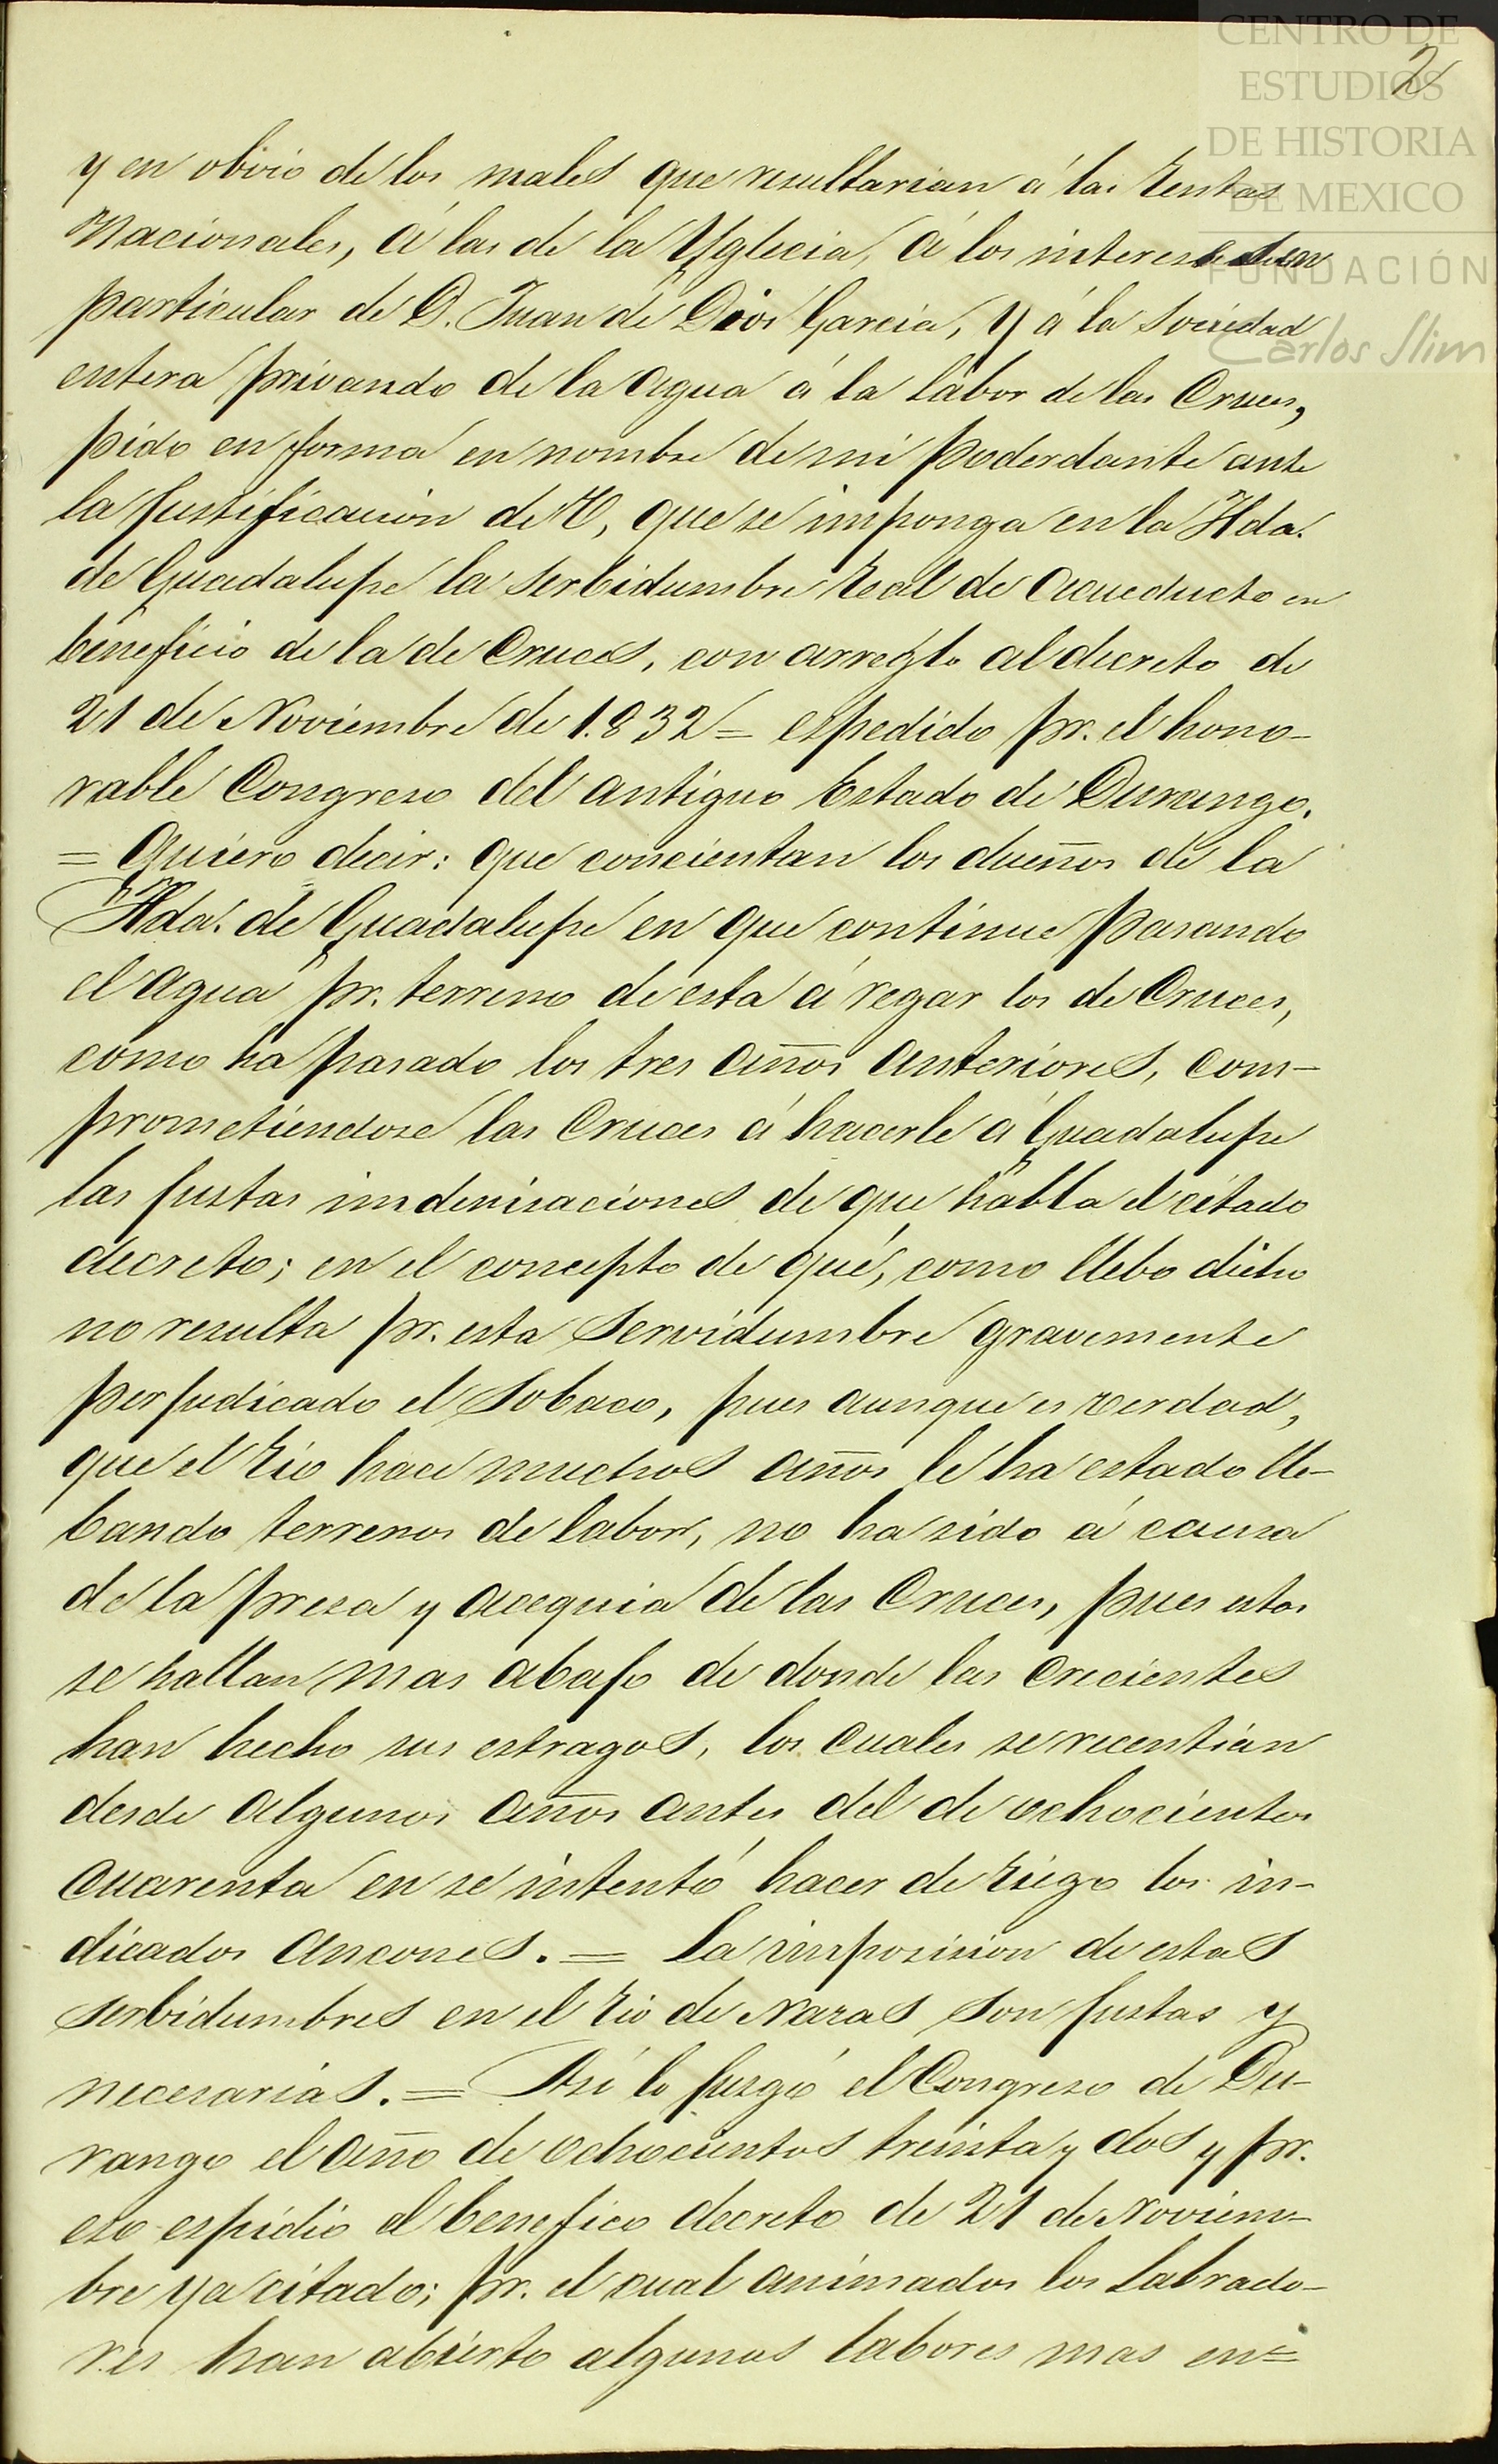 CENTRO DE
ESTUDIOS
DE HISTORIA
DE MEXICO
FUNDACIÓN
Carlos Slim
2
y en obivio de los males que resultarian á las Rentas
Nacionales, á las de la Yglecia, á los intereses en
particular de D. Juan de Dios Garcia, y á la sociedad
entera privando de la agua á la labor de las Cruces,
pido en forma en nombre de mi poderdante ante
la justificacion de V, que se imponga en la Hda.
de Guadalupe la serbidumbre Real de acueducto en
beneficio de la de Cruces, con arreglo al decreto de
21 de Noviembre de 1.832 = espedido pr. el hono-
rable Congreso del antiguo Estado de Durango.
= Quiero decir: que concientan los dueños de la
Hda. de Guadalupe en que continue pasando
el agua pr. terreno de esta á regar los de Cruces,
como ha pasado los tres años anteriores, com-
prometiendose las Cruces á hacerle á Guadalupe
las justas imdenisaciones de que habla el citado
decreto; en el concepto de qué, como llebo dicho
no resulta pr. esta servidumbre gravemente
perjudicado el Sobaco, pues aunque es verdad,
que el Rio hace muchos años le ha estado lle-
bando terrenos de labor, no ha sido á causa
de la presa y acequia de las Cruces, pues estos
se hallan mas abajo de donde las crecientes
han hecho sus estragos, los cuales se recentian
desde algunos años antes del de ochocientos
cuarenta en se intentó hacer de riego los in-
dicados ancones. = La imposision de estas
serbidumbres en el Rio de Nazas son justas y
necesarias. = Asi lo jusgó el Congreso de Du-
rango el año de ochocientos treinta y dos y pr.
eso espidio el benefico decreto de 21 de Noviem-
bre ya citado; pr. el cual animados los Labrado-
res han abierto algunas labores mas en=